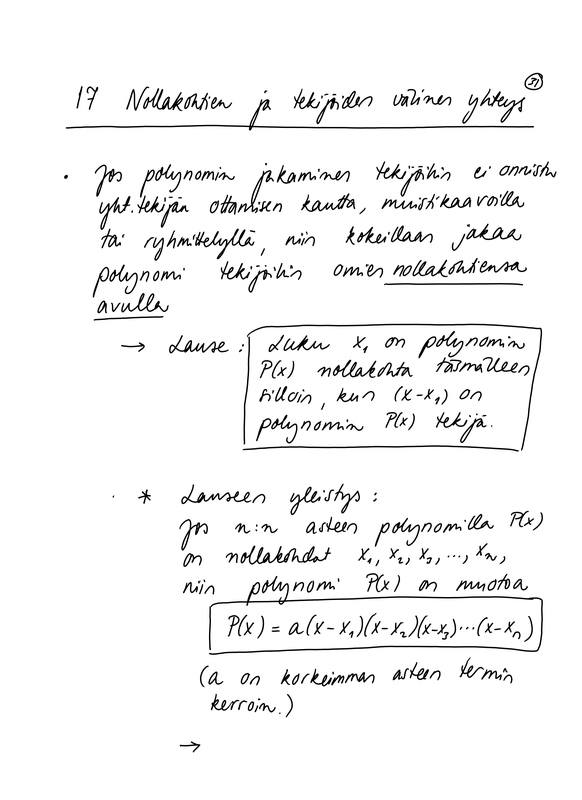 31
17 Nollakohtien ja tekijöiden välinen yhteys
• Jos polynomin jakaminen tekijöihin ei onnistu
yht.tekijän ottamisen kautta, muistikaavoilla
tai ryhmittelyllä, niin kokeillaan jakaa
polynomi tekijöihin omien nollakohtiensa
avulla
→ Lause: Luku x₁ on polynomin
P(x) nollakohta täsmälleen
silloin, kun (x-x₁) on
polynomin P(x) tekijä.
* Lauseen yleistys:
Jos n:n asteen polynomilla P(x)
on nollakohdat x₁, x₂, x₃, ..., xₙ,
niin polynomi P(x) on muotoa
P(x) = a(x-x₁)(x-x₂)(x-x₃)...(x-xₙ)
(a on korkeimman asteen termin
kerroin.)
→